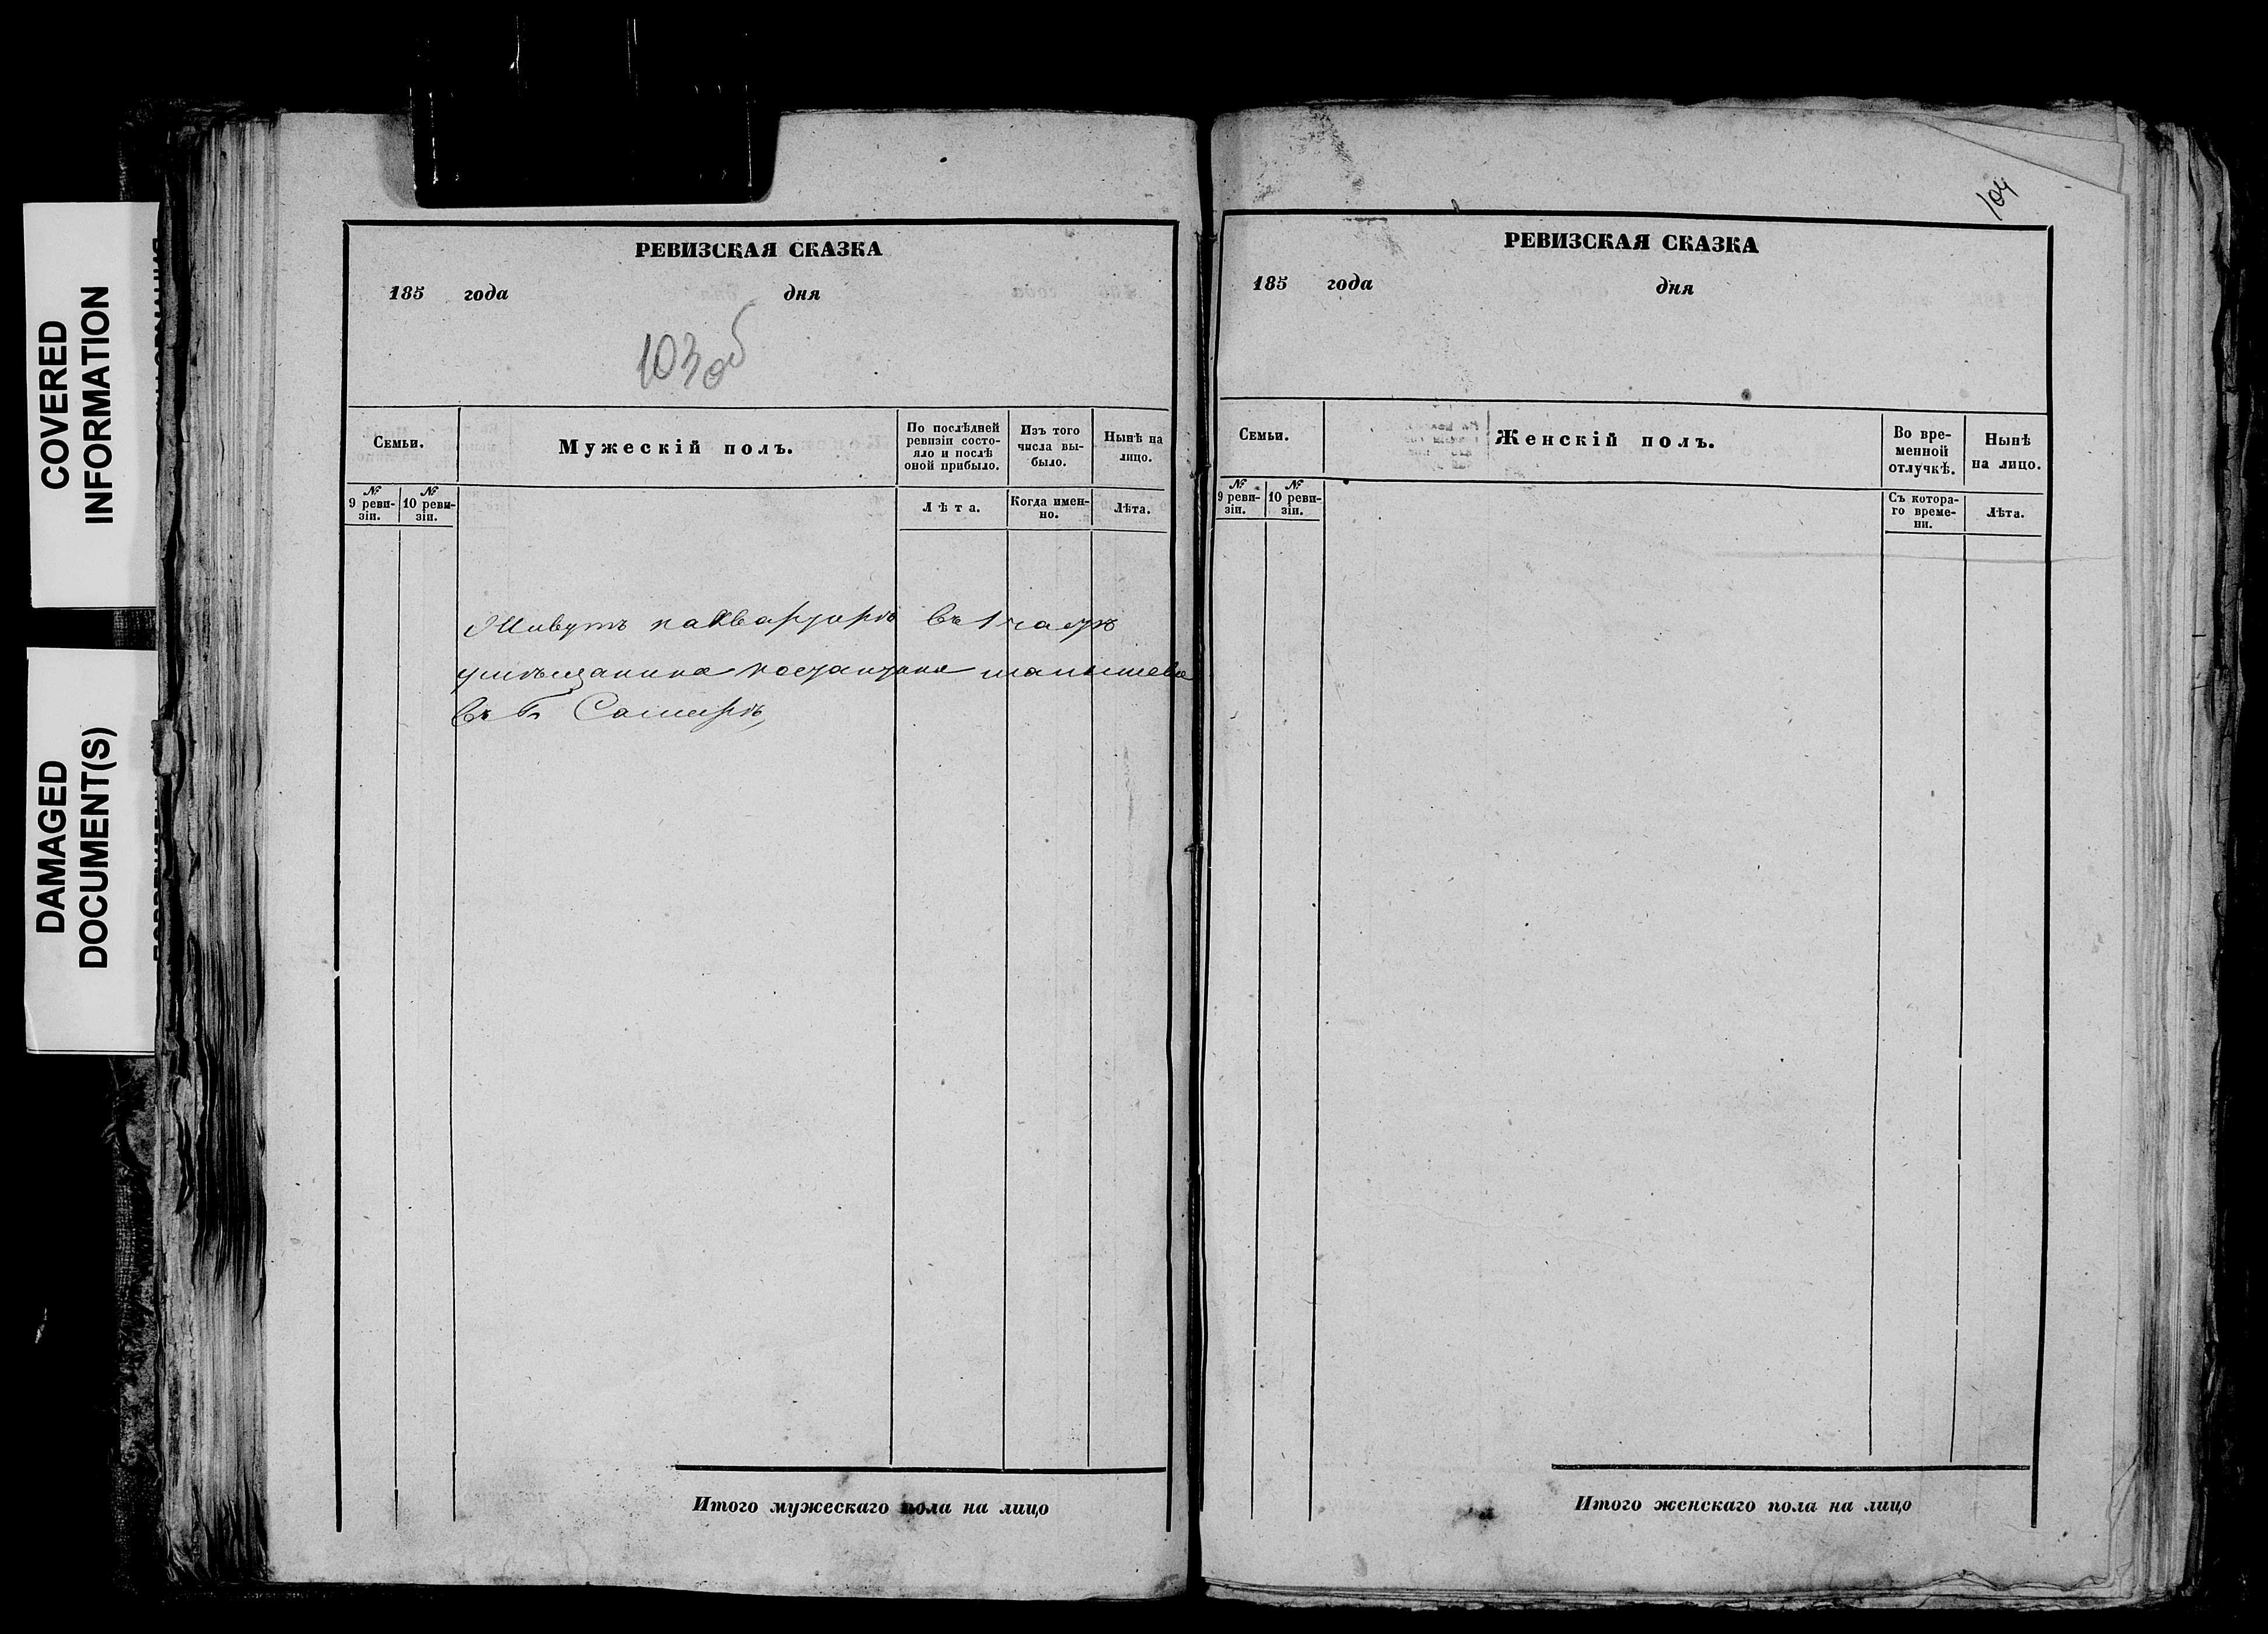 COVERED
INFORMATION
DAMAGED
DOCUMENT(S)
РЕВИЗСКАЯ СКАЗКА
185 года дня
103 об
Семьи.
Мужескій полъ.
По послѣдней
ревизіи состо-
яло и послѣ
оной прибыло.
Изъ того
числа вы-
было.
Нынѣ на
лицо.
№
9 реви-
зіи.
№
10 реви-
зіи.
Лѣта.
Когда имен-
но.
Лѣта.
Живутъ на Квартирѣ въ 1 части
умѣщанина
въ г. Самарѣ,
Итого мужескаго пола на лицо
104
РЕВИЗСКАЯ СКАЗКА
185 года дня
Семьи.
Женскій полъ.
Во вре-
менной
отлучкѣ.
Нынѣ
на лицо.
№
9 реви-
зіи.
№
10 реви-
зіи.
Съ котора-
го време-
ни.
Лѣта.
Итого женскаго пола на лицо